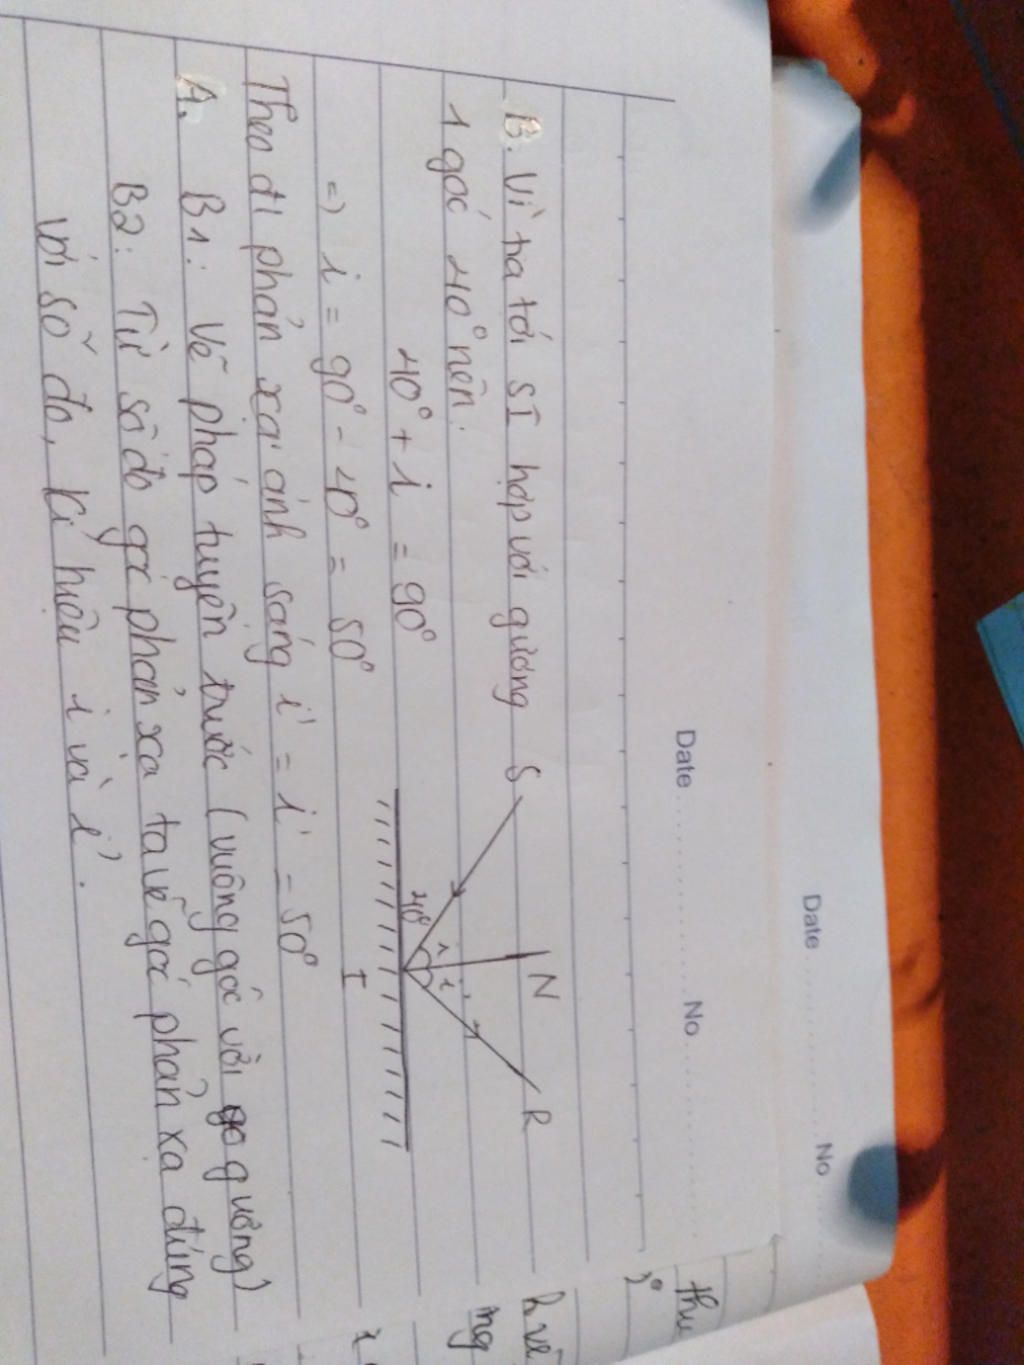 Date No
Date No
B. Vì tia tới SI hợp với gương
1 góc 40° nên:
40° + i = 90°
=) i = 90° - 40° = 50°
Theo đl phản xạ ánh sáng i' = i = 50°
A. B1: Vẽ pháp tuyến trước (vuông góc với gương)
B2: Từ số đo góc phản xạ ta vẽ góc phản xạ đúng
với số đo, kí hiệu i và i'.
S N R
40° i i'
I
thu
h vẽ
ng